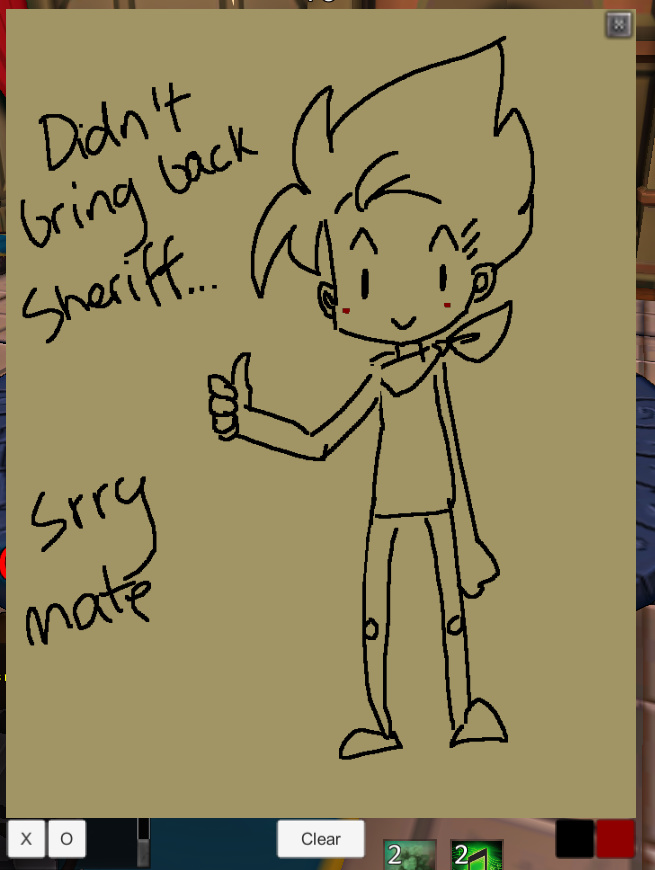 Didn't
bring back
sheriff...
Srry
mate
X O Clear
2 2